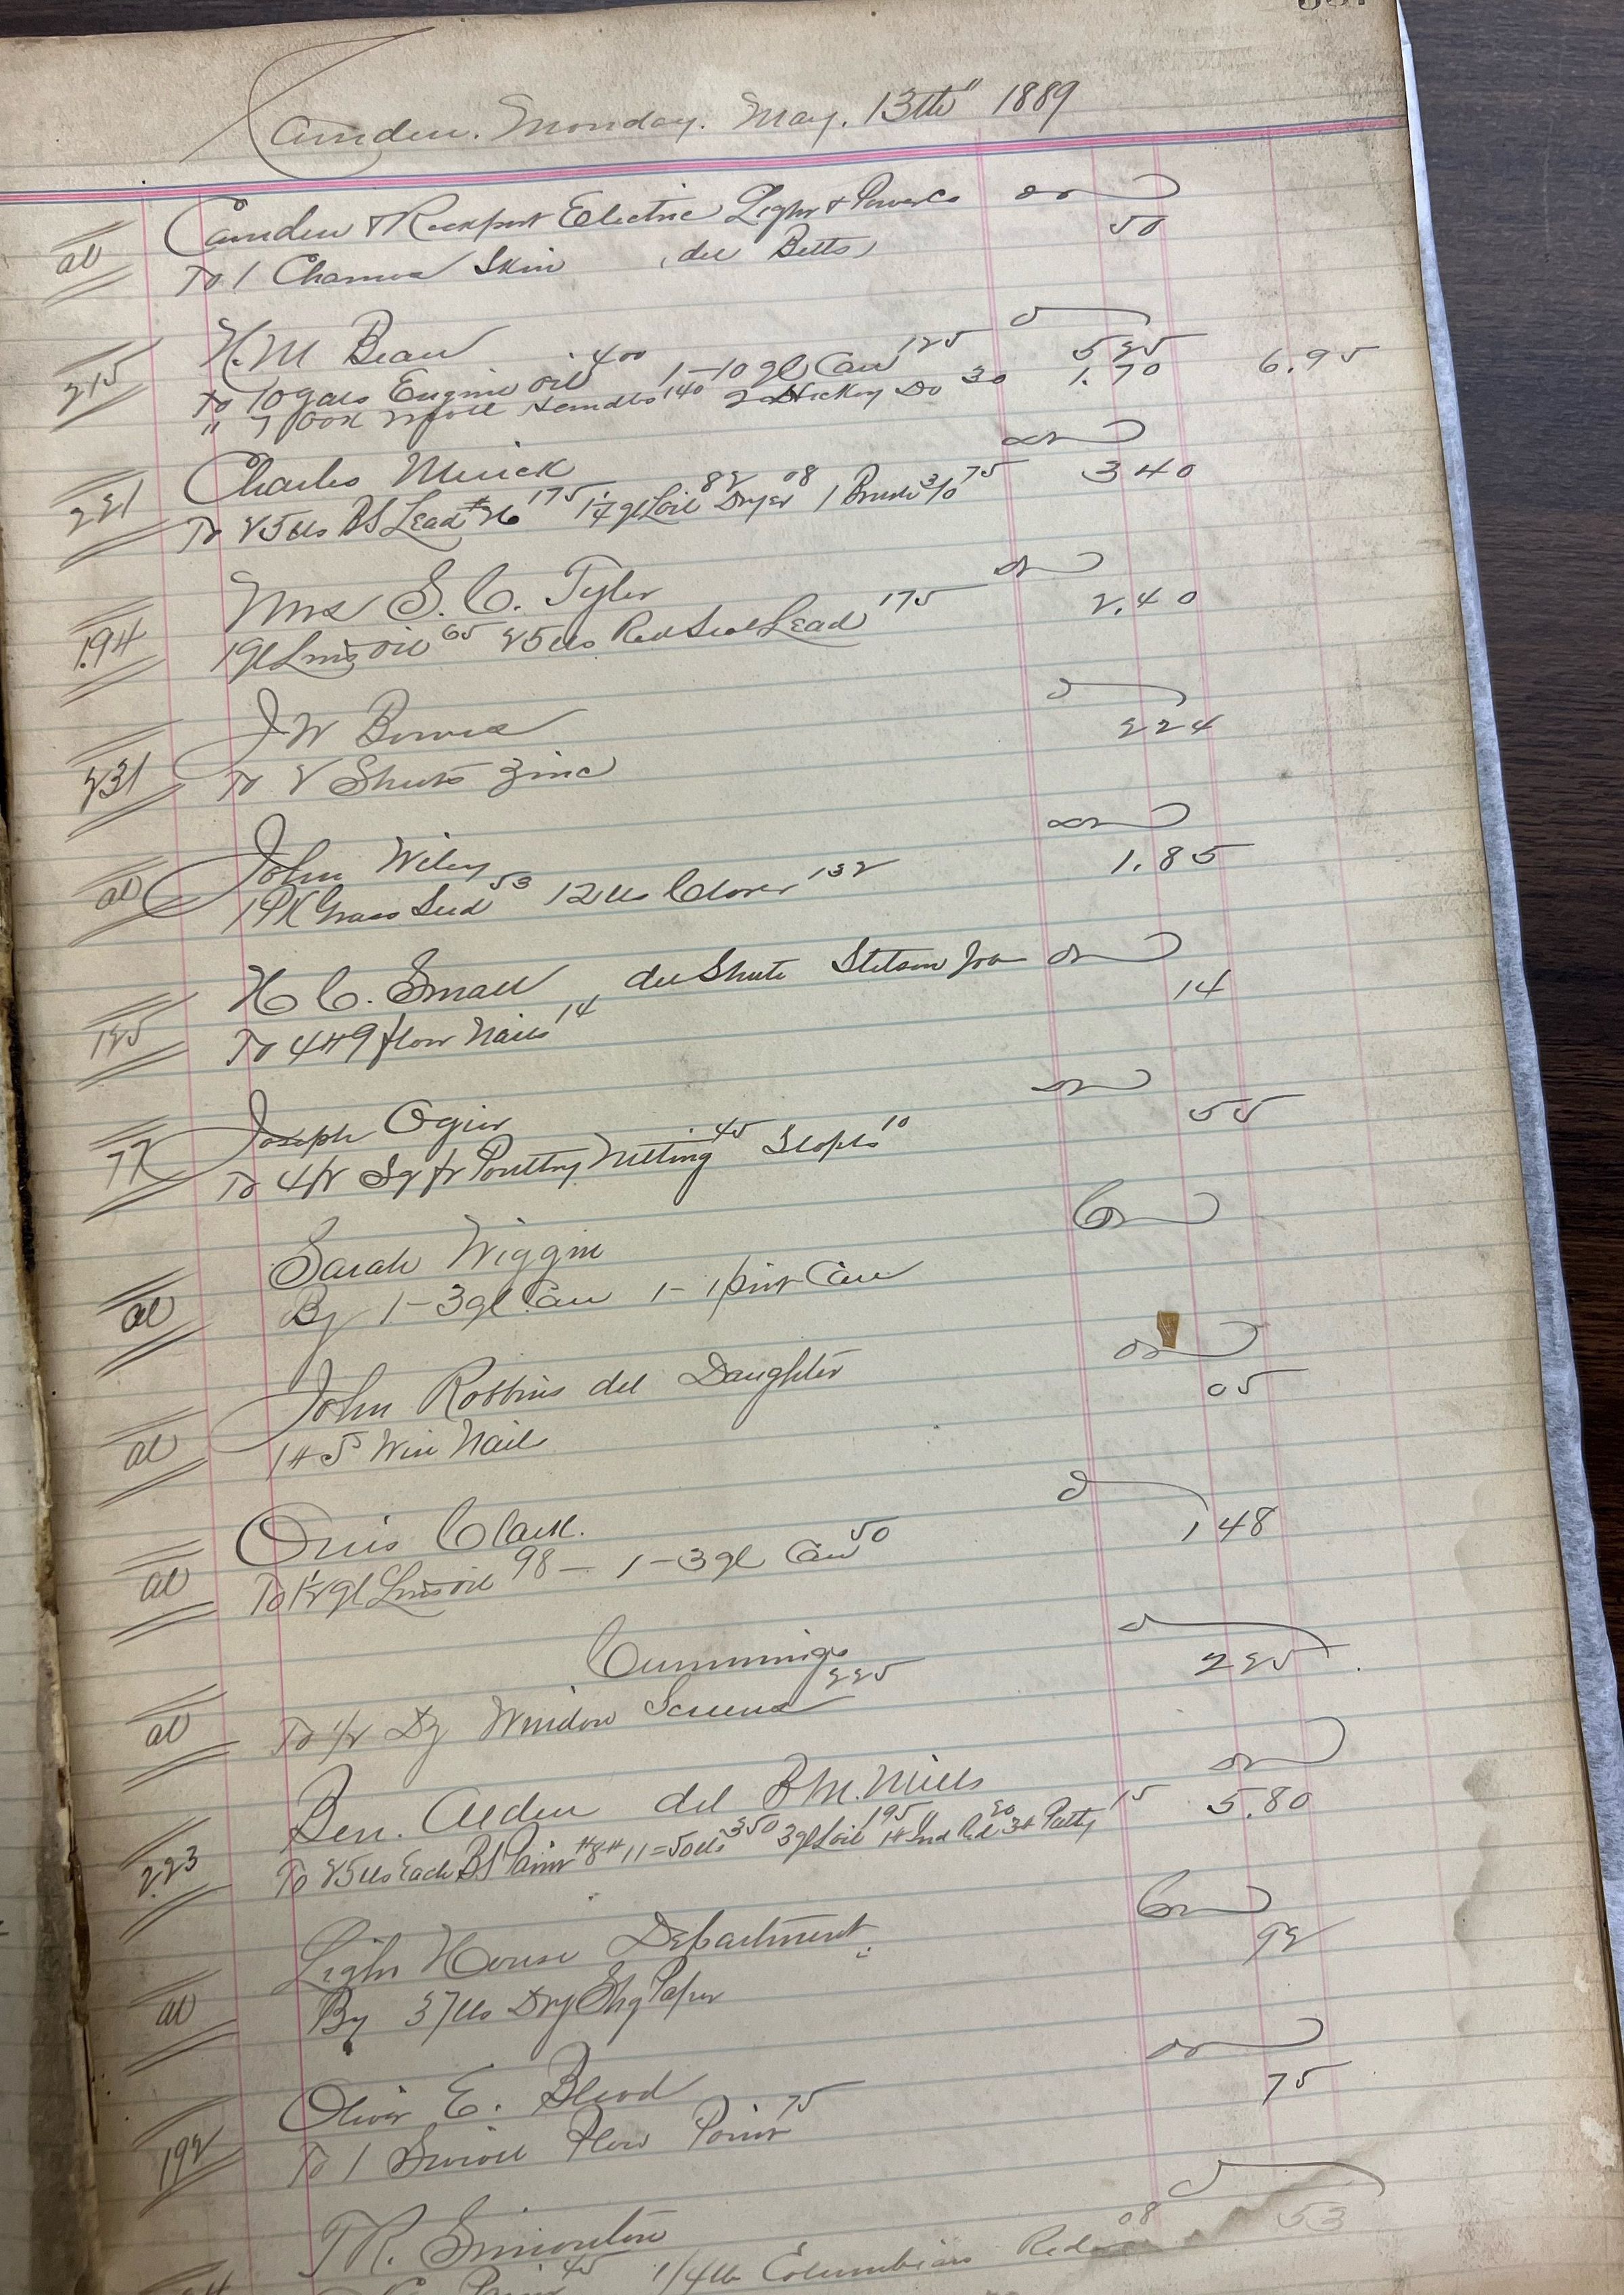 Camden. Monday. May. 13th" 1889
Camden & Rockport Electric Light & Power Co Dr
al To 1 Chamois Skin (del Betts) 50
H. M Bean Dr
215 To 10 gals Engine Oil 400 1-10 gl Can 125 525
" 7 Handles 140 2 Hickory Do 30 1.70 6.95
Charles Mirick Dr
221 To 25 lbs BS Lead #26 175 1 1/4 gl Loil 82 Dryer 08 1 Brush 3/0 75 340
Mrs S. C. Tyler Dr
194 1 gl Lins Oil 65 25 lbs Red Seal Lead 175 2.40
J W Bowers Dr
231 To 2 Sheets Zinc 224
John Wiley Dr
al 1 PK Grass Seed 53 12 lbs Clover 132 1.85
H C. Small del Shute Stetson Job Dr
125 To 4# 9 flour Nails 14 14
Joseph Ogier Dr
77 To 4/2 Sq fr Poultry Netting 45 Stapls 10 55
Sarah Wiggin Cr
al By 1-3 gl Can 1-1 pint Can
John Robbins del Daughter Dr
al 1# 5 Wire Nail 05
Orris Clark. Dr
al To 1 1/2 gl Lins oil 98 - 1-3 gl Can 50 1 48
Cummings Dr
al To 1/2 Dz Window Screens 225 225
Ben. Alden del B M. Mills Dr
223 To 25 lbs Each BS Paint #8 # 11 = 50 lbs 350 3 gl Loil 195 1# Ind Red 20 3# Putty 15 5.80
Light House Department Cr
al By 37 lbs Dry Shg Paper 92
Oliver E. Blood Dr
192 To 1 Swivel Plow Point 75 75
T R. Simonton Dr
Paint 45 1/4 lb Columbian Red 08 53